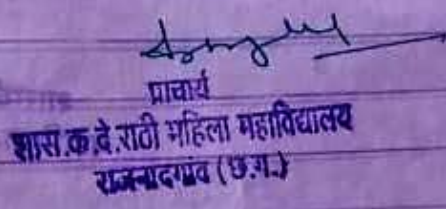 प्राचार्य
शास.क.दे.राठी महिला महाविद्यालय
राजनादगांव (छ.ग.)